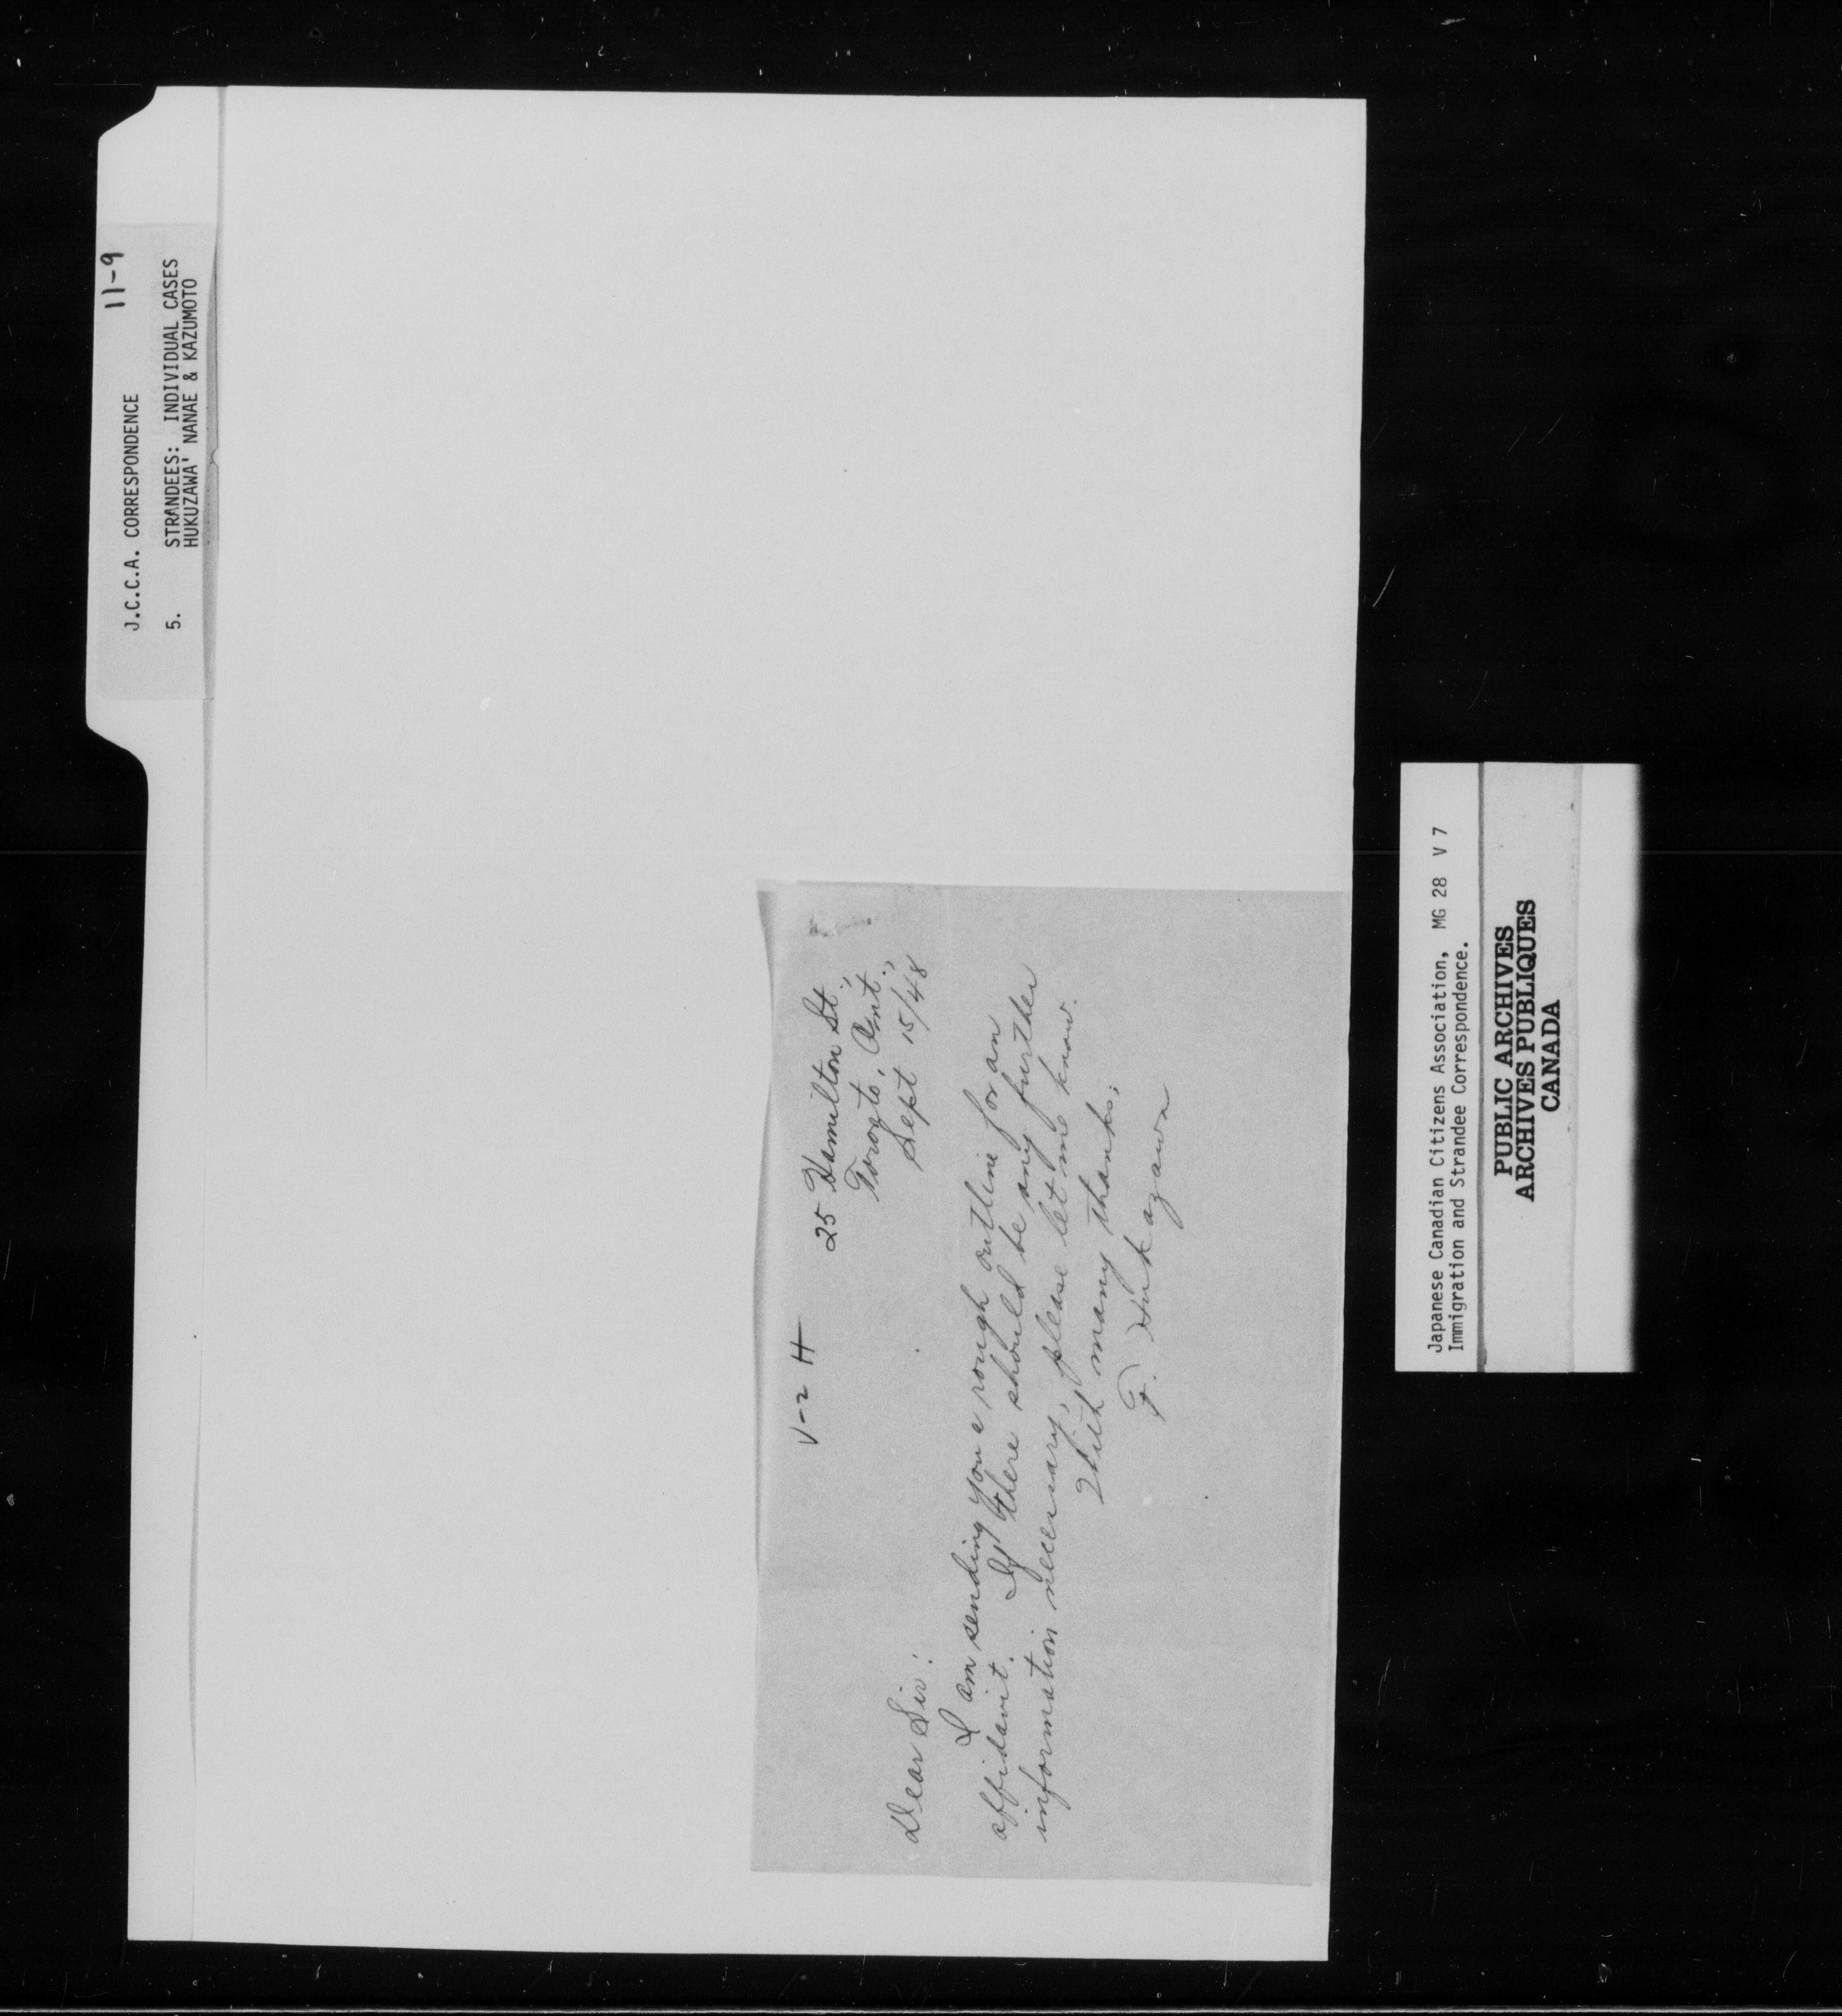 J.C.C.A. CORRESPONDENCE 11-9
5. STRANDEES: INDIVIDUAL CASES
HUKUZAWA' NANAE & KAZUMOTO
V-2 H
25 Hamilton St.,
Toronto, Ont.,
Sept 15/48
Dear Sir:
I am sending you a rough outline for an
affidavit. If there should be any further
information necessary, please let me know.
With many thanks;
F. Hukazawa
Japanese Canadian Citizens Association, MG 28 V 7
Immigration and Strandee Correspondence.
PUBLIC ARCHIVES
ARCHIVES PUBLIQUES
CANADA